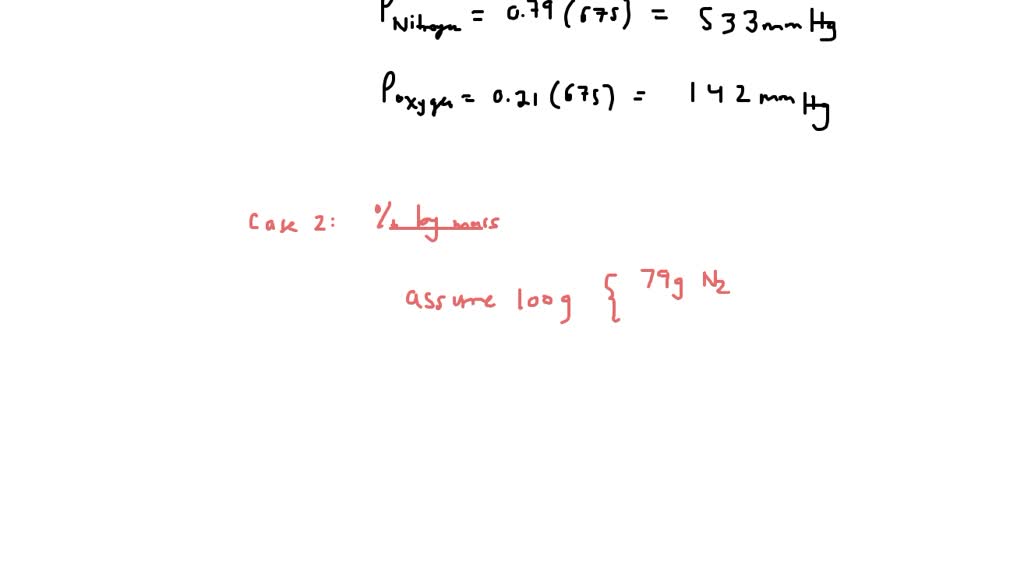 P Nitrogen = 0.79 (675) = 533 mm Hg
P oxygen = 0.21 (675) = 142 mm Hg
Case 2: % by mass
assume 100g { 79g N2